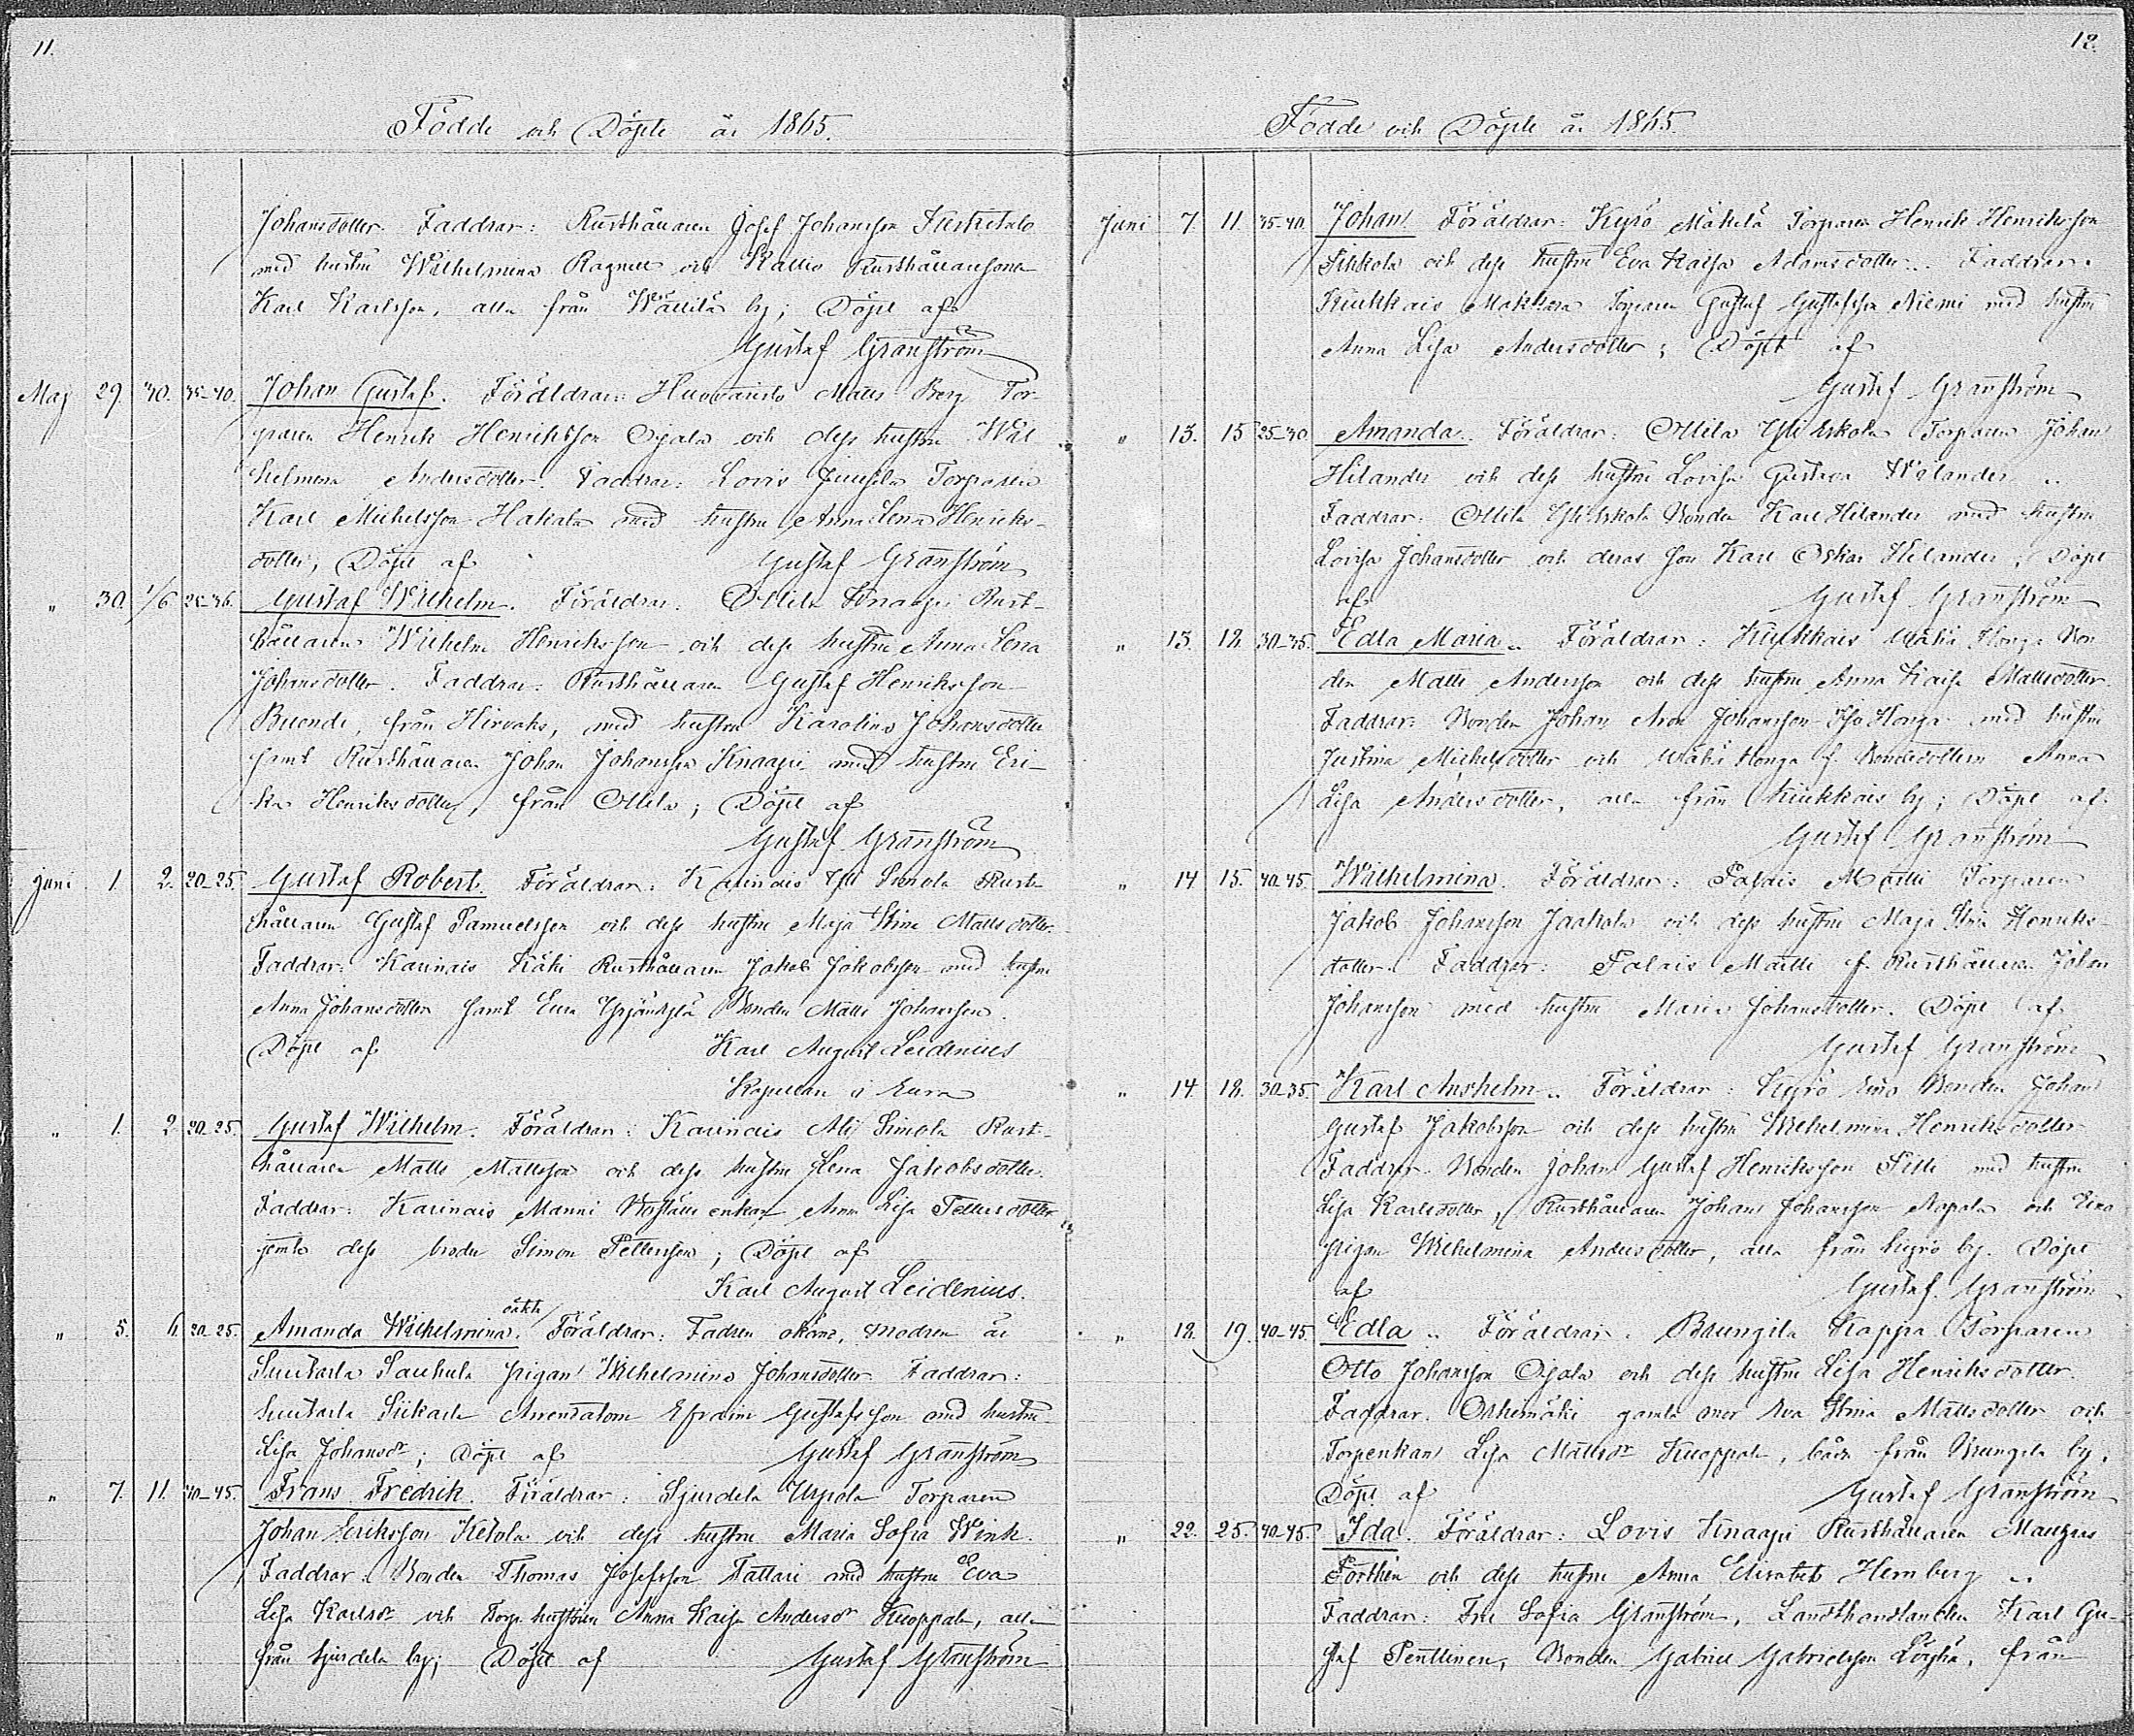 11.
Födde och Döpte år 1865.
Johansdotter. Faddrar: Rusthållaren Josef Johansson
med hustru Wilhelmina Ragnell och Kallio Rusthållaresonen
Karl Karlsson, alla från Wällilä by; Döpt af
Gustaf Granström
Maj 29 30. 35-40. Johan Gustaf. Föräldrar: Matts Berg Tor-
paren Henrik Henriksson Ojala och dess hustru Wil-
helmina Andersdotter. Faddrar: Lovis Junnila Torparen
Karl Michelsson Hakala med hustru Anna Lena Henriks-
dotter; Döpt af Gustaf Granström
" 30. 1/6 Gustaf Wilhelm. Föräldrar: Ollila Knaapi Rust-
hållaren Wilhelm Henriksson och dess hustru Anna Lena
Johansdotter. Faddrar: Rusthållaren Gustaf Henriksson
från Hirvoks, med hustru Karolina Johansdotter
samt Rusthållaren Johan Johansson Knaapi med hustru Eri-
ka Henriksdotter, från Ollila; Döpt af
Gustaf Granström
Juni 1 2. 20-25. Gustaf Robert. Föräldrar: Karinais Yli Simola Rust-
hållaren Gustaf Samuelsson och dess hustru Maja Stina Mattsdotter.
Faddrar: Karinais Käki Rusthållaren Jakob Jakobsson med hustru
Anna Johansdotter samt Eura Bonden Matts Johansson.
Döpt af Karl August Leidenius
Kapellan i Eura
" 1. 2 20-25. Gustaf Wilhelm. Föräldrar: Karinais Ali Simola Rust-
hållaren Matts Mattsson och dess hustru Lena Jakobsdotter.
Faddrar: Karinais Manni enkan Anna Lisa Pettersdotter
jemte dess broder Simon Pettersson; Döpt af
Karl August Leidenius.
" 5. 6. 20-25. Amanda Wilhelmina. oäkta Föräldrar: Fadren okänd, modren är
Suutarla Saukula pigan Wilhelmina Johansdotter. Faddrar:
Suutarla Siikarla Arrendatorn Efraim Gustafsson med hustru
Lisa Johansdr; Döpt af Gustaf Granström
" 7. 11. 40-45. Frans Fredrik. Föräldrar: Sjurdela Uspola Torparen
Johan Eriksson Ketola och dess hustru Maria Sofia Wink.
Faddrar: Bonden Thomas Josefsson Tattari med hustru Eva
Lisa Karlsdr och Torp. hustrun Anna Kaisa Andersdr Knoppala, alla
från Sjurdela by; Döpt af Gustaf Granström
12.
Födde och Döpte år 1865.
Juni 7. 11. 35-40. Johan. Föräldrar: Kyrö Mäkilä Torparen Henrik Henriksson
Sikkola och dess hustru Eva Kaisa Adamsdotter. Faddrar:
Kiukkais Makkara Torparen Gustaf Gustafsson Niemi med hustru
Anna Lisa Andersdotter; Döpt af
Gustaf Granström
" 13. 15 25-30 Amanda. Föräldrar: Ollila Yli Eskola Torparen Johan
Hilander och dess hustru Lovisa Gustava Wilander
Faddrar: Ollila Yli Eskola Bonden Karl Hilander med hustru
Lovisa Johansdotter och deras son Karl Oskar Hilander; Döpt
af Gustaf Granström
" 13. 18. 30-35. Edla Maria. Föräldrar: Kiukkais Wähä Honga Bon-
den Matts Andersson och dess hustru Anna Kaisa Mattsdotter.
Faddrar: Bonden Johan Aron Johansson Iso Honga med hustru
Justina Michelsdotter och Wähä Honga f. Bondedottern Anna
Lisa Andersdotter, alla från Kiukkais by; Döpt af
Gustaf Granström
" 14 15. 40-45. Wilhelmina. Föräldrar: Palais Mälli Torparen
Jakob Johansson Jaakola och dess hustru Maja Stina Henriks-
dotter. Faddrar: Palais Mälli f. Rusthållaren Johan
Johansson med hustru Maria Johansdotter. Döpt af
Gustaf Granström
" 14. 18. 30-35. Karl Anshelm. Föräldrar: Kyrö Bonden Johan
Gustaf Jakobsson och dess hustru Wilhelmina Henriksdotter
Faddrar: Bonden Johan Gustaf Henriksson Pilli med hustru
Lisa Karlsdotter, Rusthållaren Johan Johansson och
pigan Wilhelmina Andersdotter, alla från Kyrö by. Döpt
af Gustaf Granström
" 18. 19. 40-45. Edla. Föräldrar: Raungila Kappra Torparen
Otto Johansson Ojala och dess hustru Lisa Henriksdotter.
Faddrar. gamla mor Eva Stina Mattsdotter och
Torpenkan Lisa Mattsdr Knoppala, båda från by.
Döpt af Gustaf Granström
" 22. 25. 40-45. Ida. Föräldrar: Lovis Knaapi Rusthållaren Mauzus
Forthén och dess hustru Anna Elisabeth Hernberg
Faddrar: Fru Sofia Granström, Landthandlanden Karl Gu-
staf Penttinen, Bonden Gabriel Gabrielsson från